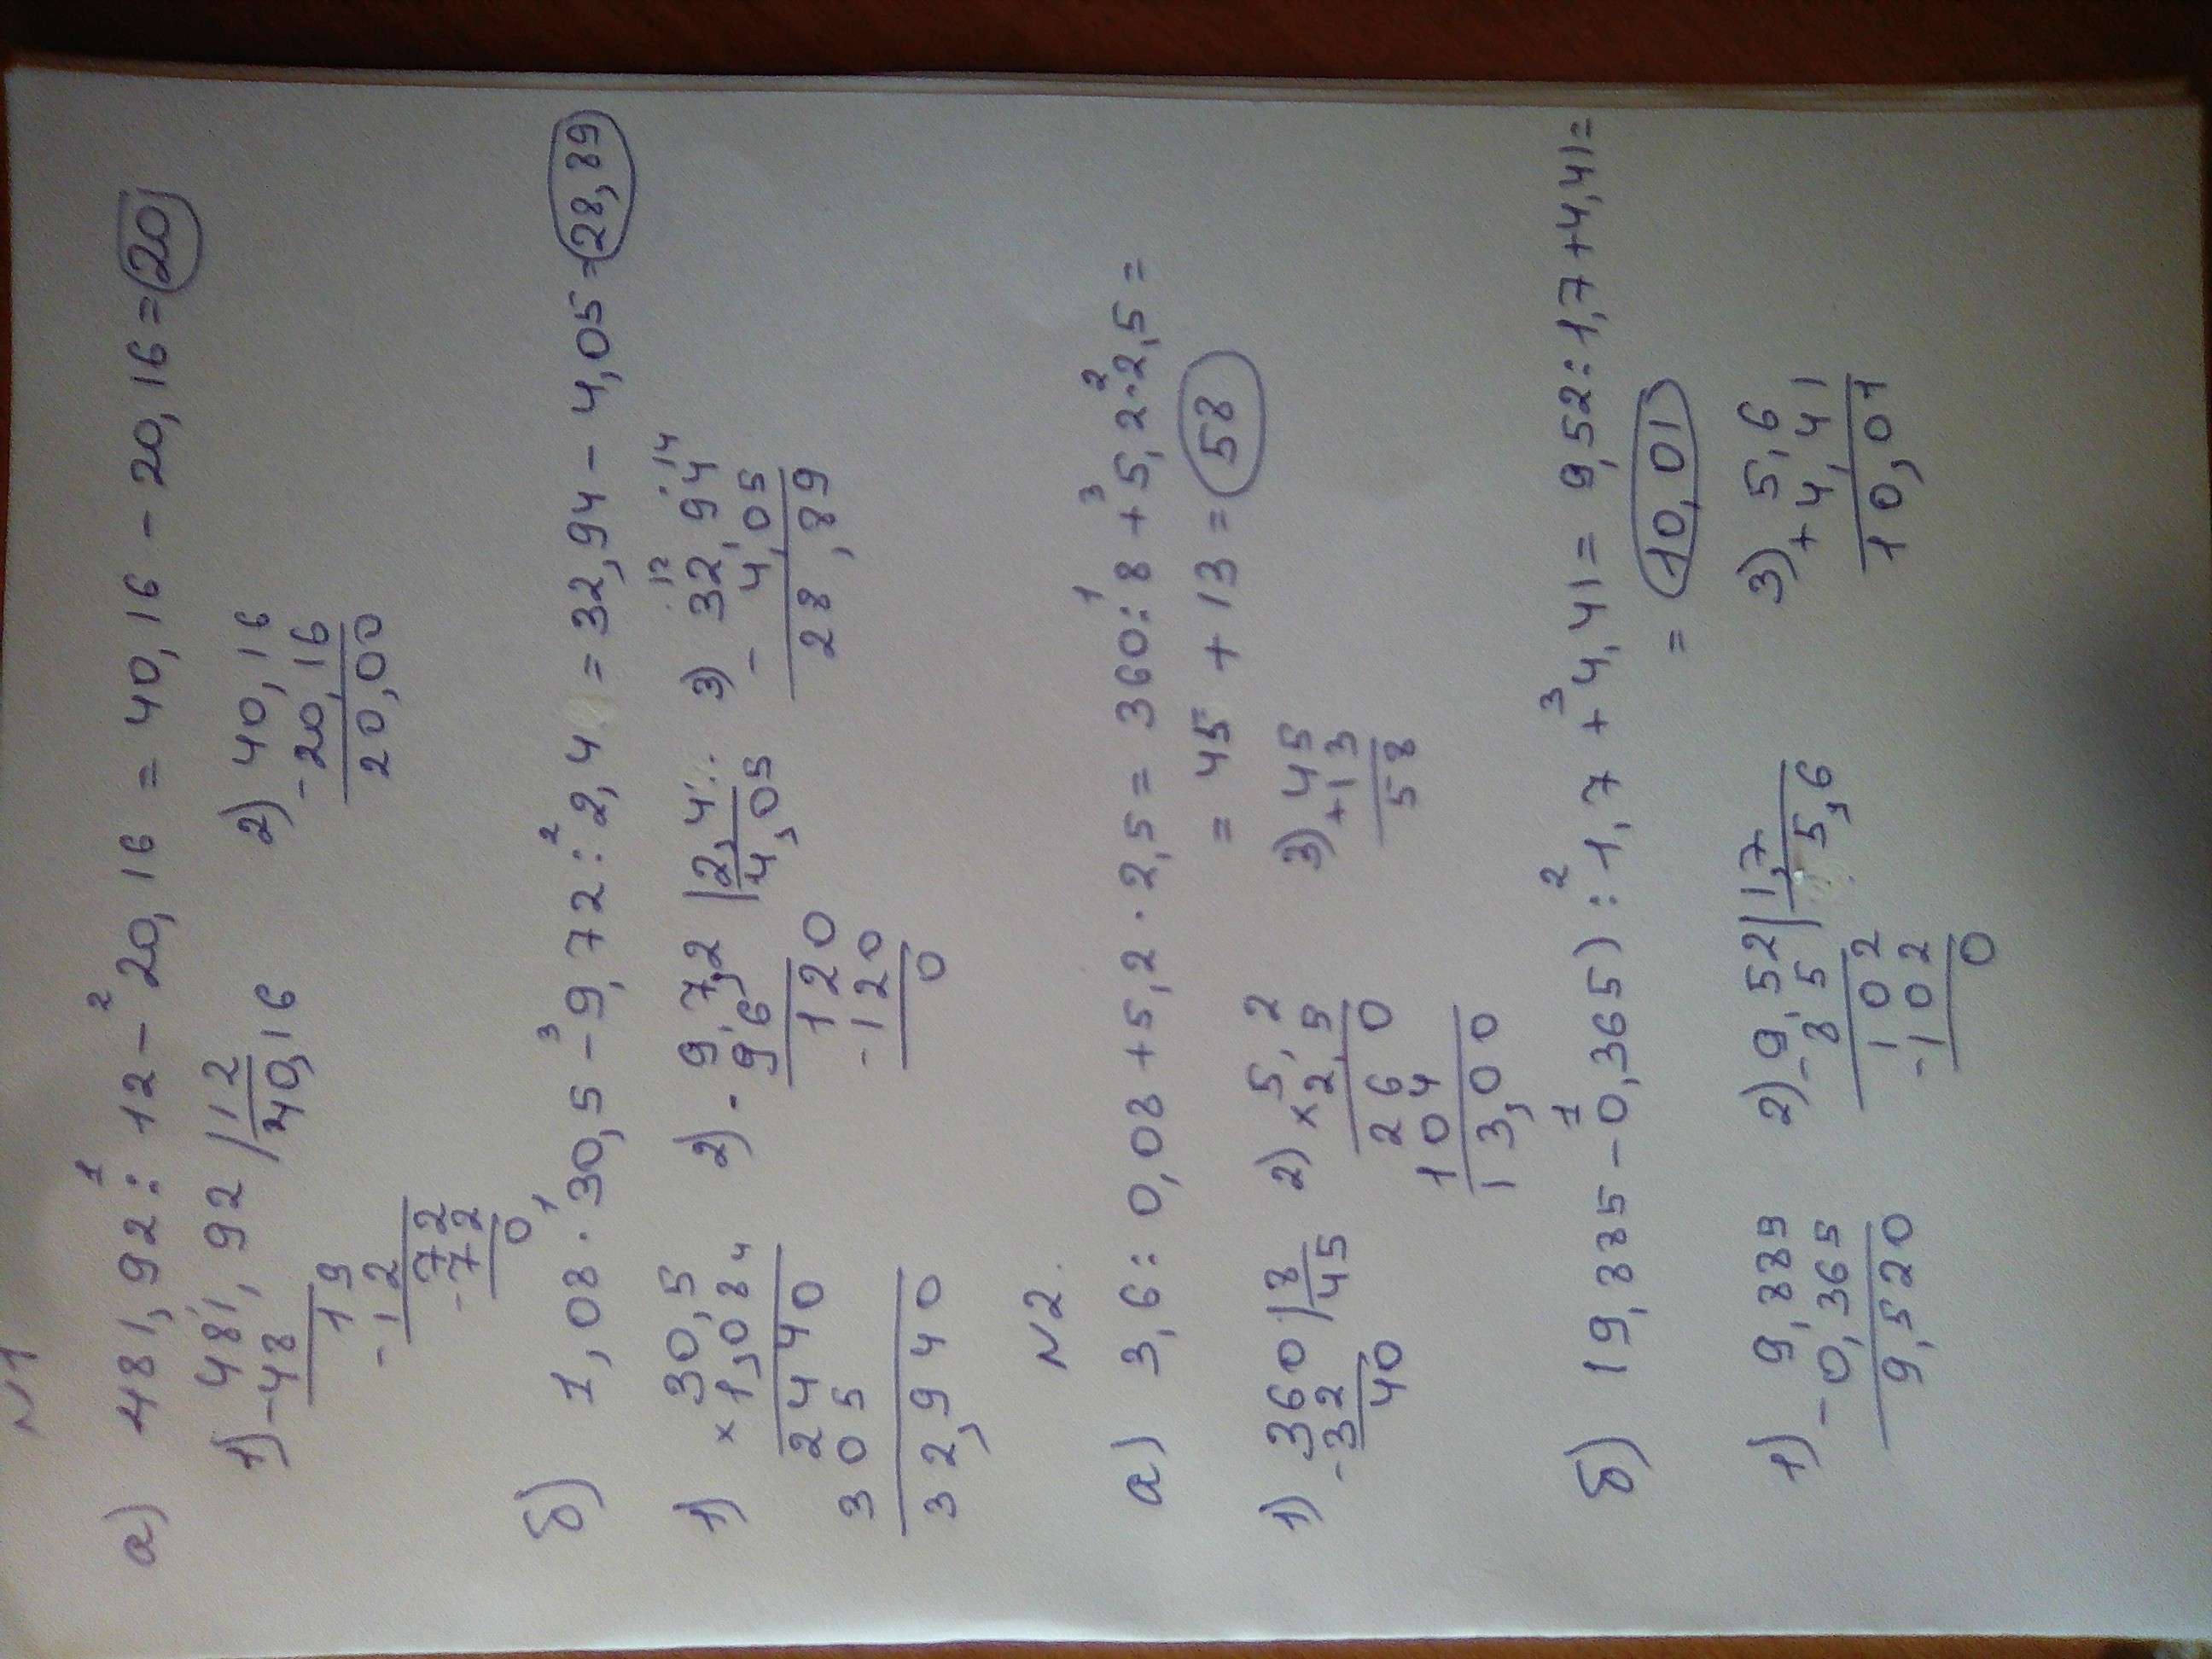 N1
а) 481,92 : 12 - 20,16 = 40,16 - 20,16 = 20
1) 481,92 | 12
-48 40,16
19
-12
72
-72
0
2) 40,16
-20,16
20,00
б) 1,08 · 30,5 - 9,72 : 2,4 = 32,94 - 4,05 = 28,89
1) 30,5
× 1,08
2440
305
32,940
2) - 9,7,2 | 2,4
96 4,05
120
-120
0
3) 32,94
- 4,05
28,89
N2.
а) 3,6 : 0,08 + 5,2 · 2,5 = 360 : 8 + 5,2 · 2,5 =
= 45 + 13 = 58
1) 360 | 8
-32 45
40
2) 5,2
× 2,5
260
104
13,00
3) 45
+13
58
б) (9,885 - 0,365) : 1,7 + 4,41 = 9,52 : 1,7 + 4,41 =
= 10,01
1) 9,885
- 0,365
9,520
2) 9,52 | 1,7
- 85 5,6
102
-102
0
3) 5,6
+ 4,41
10,01